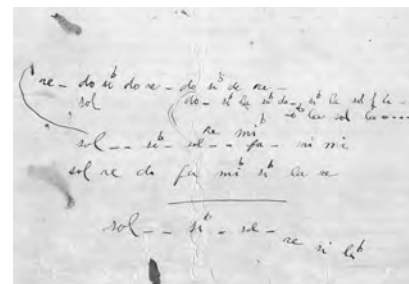 re - do si b do re - do si b do re -
sol do - si b la si b do - si b la sol
re mi b la sol la
sol - - si b - sol - - fa - mi
sol re do fa mi b si b la re
sol - - si b - sol - re si la b